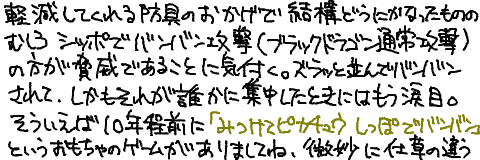 軽減してくれる防具のおかげで結構どうにかなったものの
むしろシッポでバンバン攻撃(ブラックドラゴン通常攻撃)
の方が脅威であることに気付く。ズラッと並んでバンバン
されて、しかもそれが誰かに集中したときにはもう涙目。
そういえば10年程前に「みつけてピカチュウ しっぽでバンバン」
というおもちゃのゲームがありましてね、微妙に仕草の違う